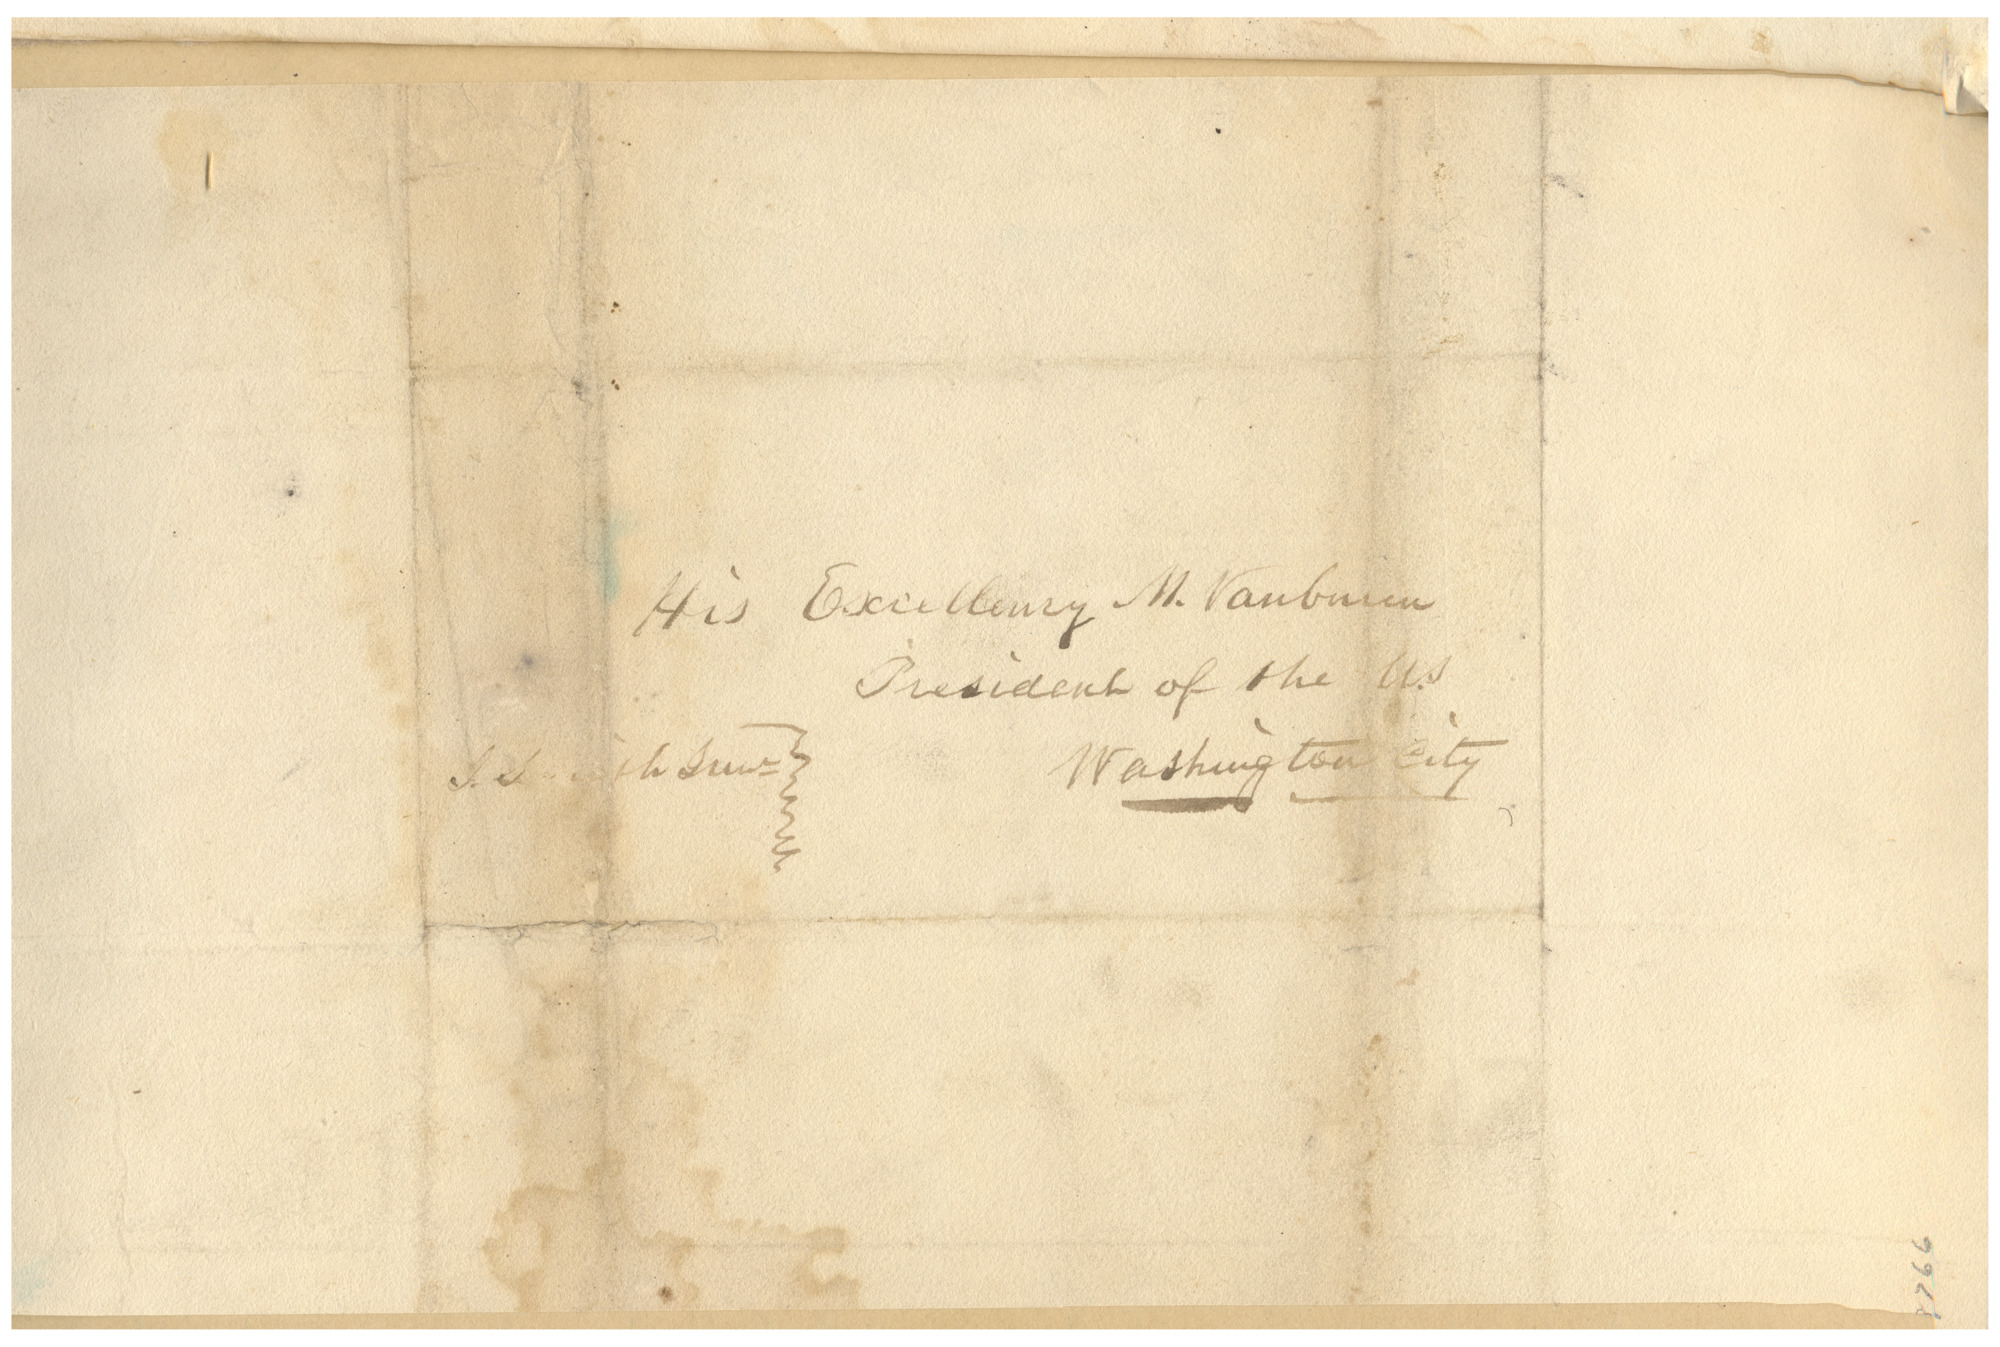 His Excellency M. Vanburen
President of the U.S
Washington City
8766